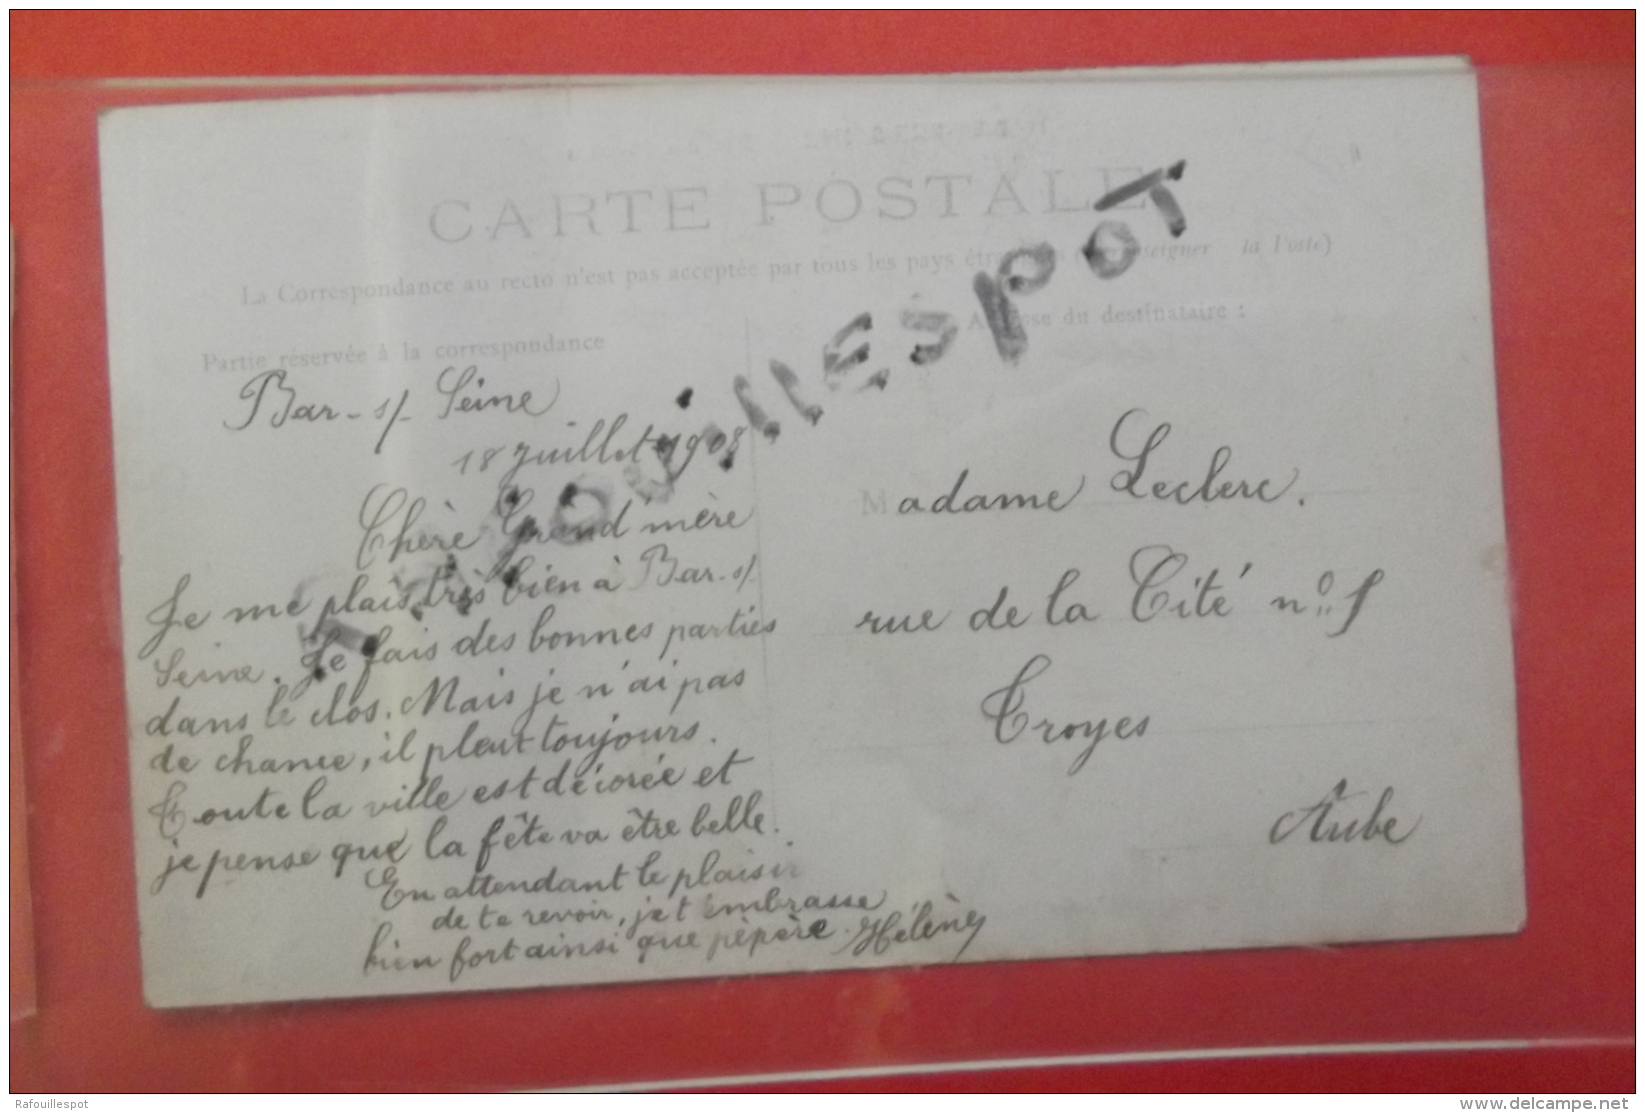 CARTE POSTALE
La Correspondance au recto n'est pas acceptée par tous les pays (se renseigner la Poste)
Partie réservée à la correspondance
Adresse du destinataire :
RAFOUILLESPOT
Bar-s/- Seine
18 juillet 1908
Chère Grand'mère
Je me plais très bien à Bar-s/-
Seine. Je fais des bonnes parties
dans le clos. Mais je n'ai pas
de chance, il pleut toujours.
Toute la ville est décorée et
je pense que la fête va être belle.
En attendant le plaisir
de te revoir, je t'embrasse
bien fort ainsi que pépère. Hélène
Madame Leclerc.
rue de la Cité nº
Troyes
Aube
Rafouillespot
delcampe.net